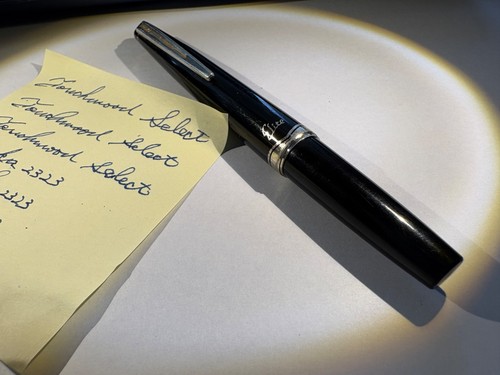 Touchwood Select
Touchwood Select
Touchwood Select
2323
2323
Elite